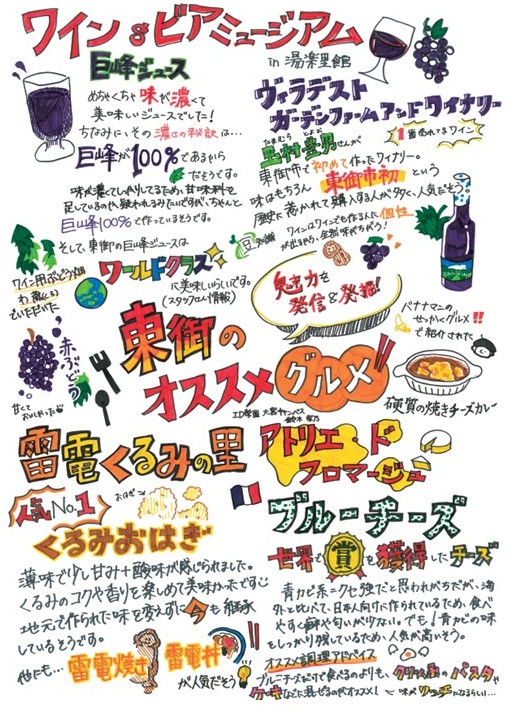 ワイン&ビアミュージアム
in 湯楽里館
巨峰ジュース
めちゃくちゃ味が濃くて
美味しいジュースでした!
ちなみに、その濃さの秘訣は…
巨峰が100%であるから
だそうです。
味が濃くてしっかりしてるため、甘味料を
足しているのでは、疑われるみたいですが、ちゃんと
巨峰100%で作っているそうです。
そして、東御の巨峰ジュースは
ワールドクラス
に美味しいらしいです。
(スタッフさん情報)
ワイン用ぶどう畑
赤ぶどう
甘くて
おいしかった
ヴィラデスト
ガーデンファームアンドワイナリー
1番売れてるワイン
たまむら とよお
玉村豊男さんが
東御市で初めて作ったワイナリー。
味はもちろん 東御市初 という
歴史に惹かれて購入する人が多く、人気だそう
ワインはワインでも作る人に個性
豆知識
魅力を
発信&発掘!
バナナマンの
せっかくグルメ!!
で紹介された
硬質の焼きチーズカレー
東御の
オススメグルメ!!
ID学園 大宮キャンパス
雷電くるみの里
人気No.1
おはぎ
くるみおはぎ
薄味で少し甘み+酸味が感じられました。
くるみのコクや香りを楽しめて美味かったです
地元で作られた味を変えずに今も継承
しているそうです。
他にも…
雷電焼き
雷電丼
が人気だそう
アトリエ・ド
フロマージュ
ブルーチーズ
世界で賞を獲得したチーズ
青カビ系=クセ強だと思われがちだが、海
外と比べて、日本人向けに作られているため、食べ
やすく癖や匂いが少ない。でも!青カビの味
をしっかり残しているため、人気が高いそう。
オススメ調理アドバイス
ブルーチーズだけで食べるのよりも、クリーム系のパスタや
ケーキなどに混ぜるのがオススメ!
味がリッチになるらしい…